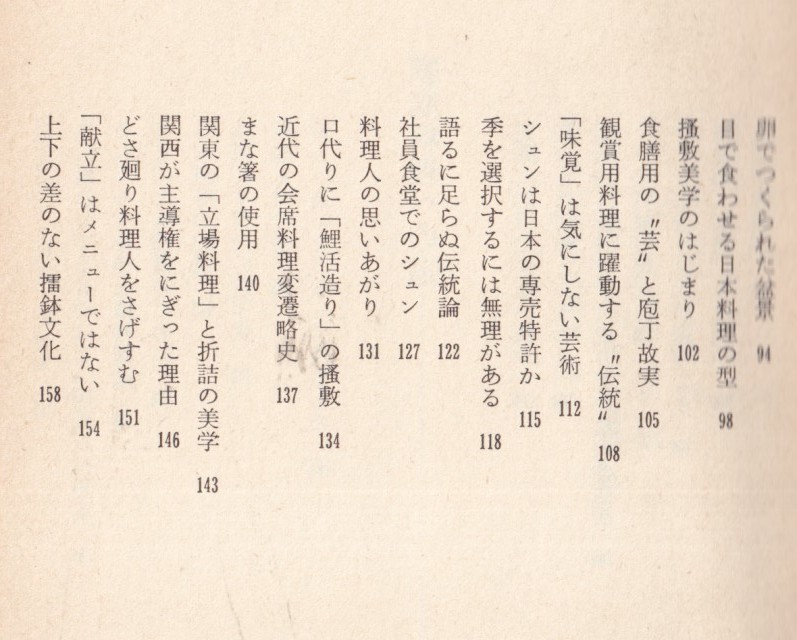 卵でつくられた盆景 94
目で食わせる日本料理の型 98
搔敷美学のはじまり 102
食膳用の〝芸〟と庖丁故実 105
観賞用料理に躍動する〝伝統〟 108
「味覚」は気にしない芸術 112
シュンは日本の専売特許か 115
季を選択するには無理がある 118
語るに足らぬ伝統論 122
社員食堂でのシュン 127
料理人の思いあがり 131
口代りに「鯉活造り」の搔敷 134
近代の会席料理変遷略史 137
まな箸の使用 140
関東の「立場料理」と折詰の美学 143
関西が主導権をにぎった理由 146
どさ廻り料理人をさげすむ 151
「献立」はメニューではない 154
上下の差のない擂鉢文化 158